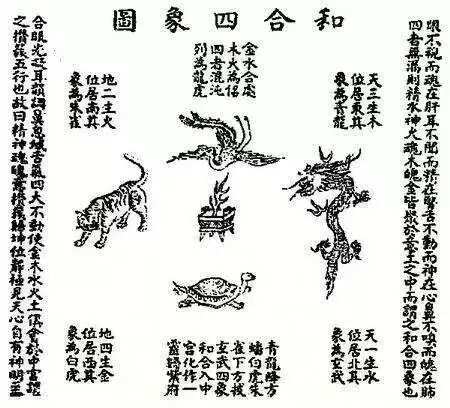 和合四象圖
眼不視而魂在肝耳不聞而精在腎舌不動而神在心鼻不嗅而魄在肺
四者無漏則精水神火魂木魄金皆聚於意土之中而謂之和合四象也
天三生木
位居東其
象為青龍
金水合處
木火為侶
四者混沌
列為龍虎
地二生火
位居南其
象為朱雀
天一生水
位居北其
象為玄武
青龍降方
蟠伯虎朱
雀下方投
玄武四象
和合入中
宮化作一
靈歸紫府
地四生金
位居西其
象為白虎
合眼光凝耳韻調鼻息緘舌氣四大不動使金木水火土俱會於中宮謂
之攢簇五行也故曰精神魂魄意攢簇歸坤位靜極見天心自有神明至